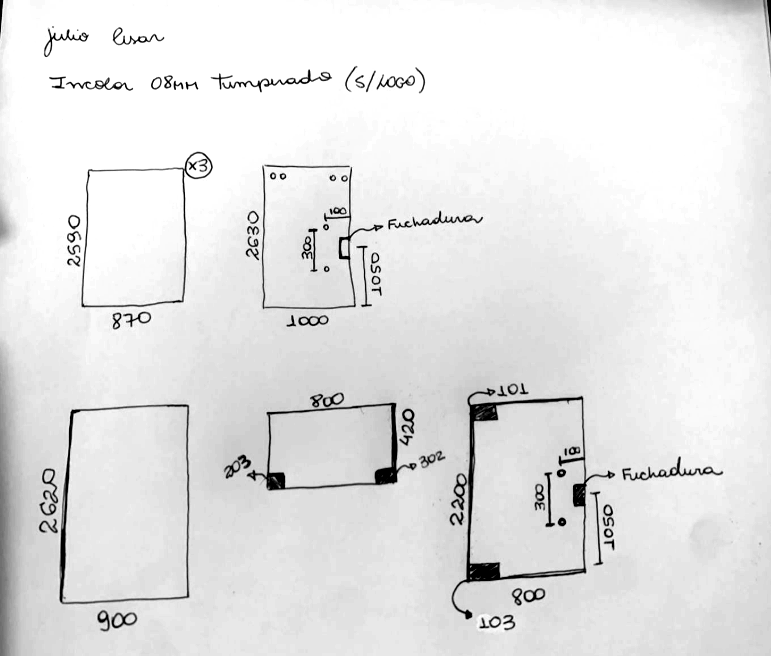 julio Cesar
Incolor 08MM Temperado (S/LOGO)
x3
2590
870
2630
100
300
Fechadura
1050
1000
2620
900
800
420
203
302
101
2200
300
Fechadura
1050
800
103